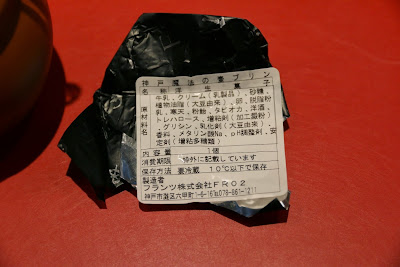 神戸魔法の壷プリン
名称 洋生菓子
原材料名
牛乳、クリーム(乳製品)、砂糖、
植物油脂(大豆由来)、卵、脱脂粉
乳、寒天、粉飴、タピオカ、洋酒、
トレハロース、増粘剤(加工澱粉)
、グリシン、乳化剤(大豆由来)、
香料、メタリン酸Na、pH調整剤、安
定剤(増粘多糖類)
内容量 1個
消費期限 枠外に記載しています
保存方法 要冷蔵 10℃以下で保存
製造者
フランツ株式会社FR02
神戸市灘区六甲町1-6-16